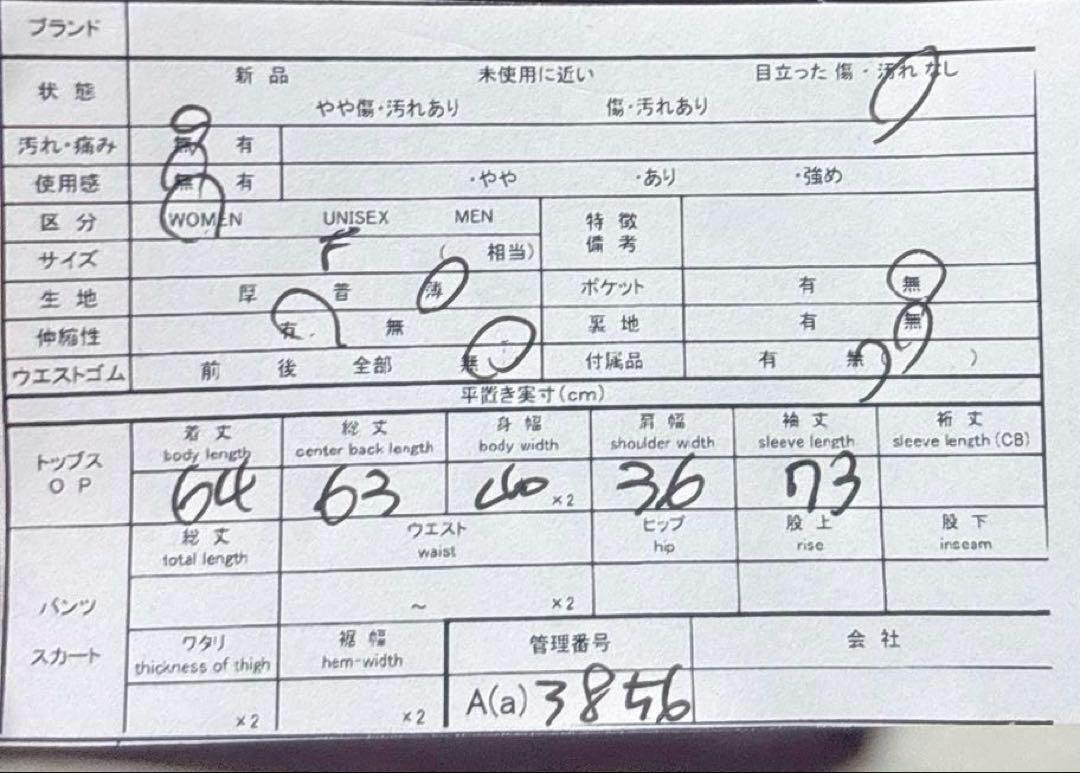 ブランド
状態 新品 未使用に近い 目立った傷・汚れなし
やや傷・汚れあり 傷・汚れあり
汚れ・痛み 無 有
使用感 無 有 ・やや ・あり ・強め
区分 WOMEN UNISEX MEN 特徴備考
サイズ F ( 相当)
生地 厚 普 薄 ポケット 有 無
伸縮性 有 無 裏地 有 無
ウエストゴム 前 後 全部 無 付属品 有 無 ( )
平置き実寸(cm)
トップス OP 着丈 総丈 身幅 肩幅 袖丈 裄丈
body length center back length body width shoulder wdth sleeve length sleeve length (CB)
64 63 40 ×2 36 73
総丈 ウエスト ヒップ 股上 股下
total length waist hip rise inseam
パンツ ~ ×2
スカート ワタリ 裾幅 管理番号 会社
thickness of thigh hem-width
×2 ×2 A(a) 3856